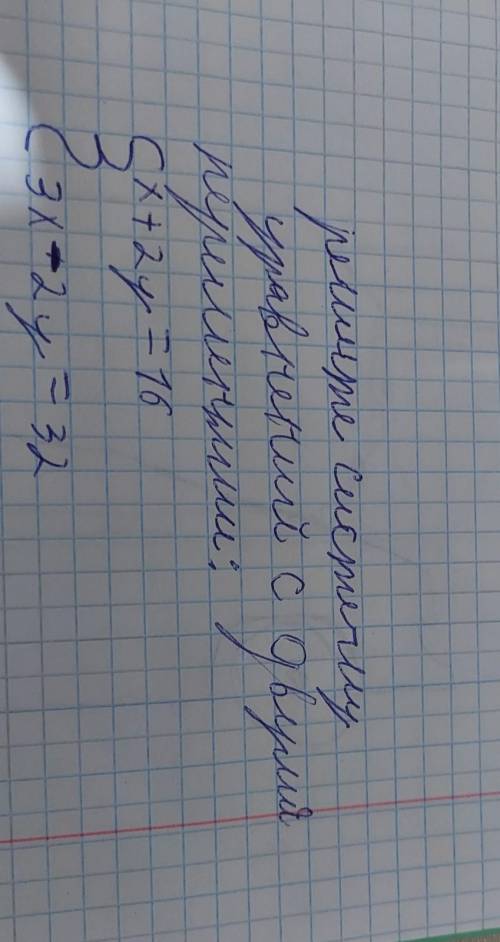 решите систему
уравнений с двумя
переменными:
{ x + 2y = 16
3x - 2y = 32